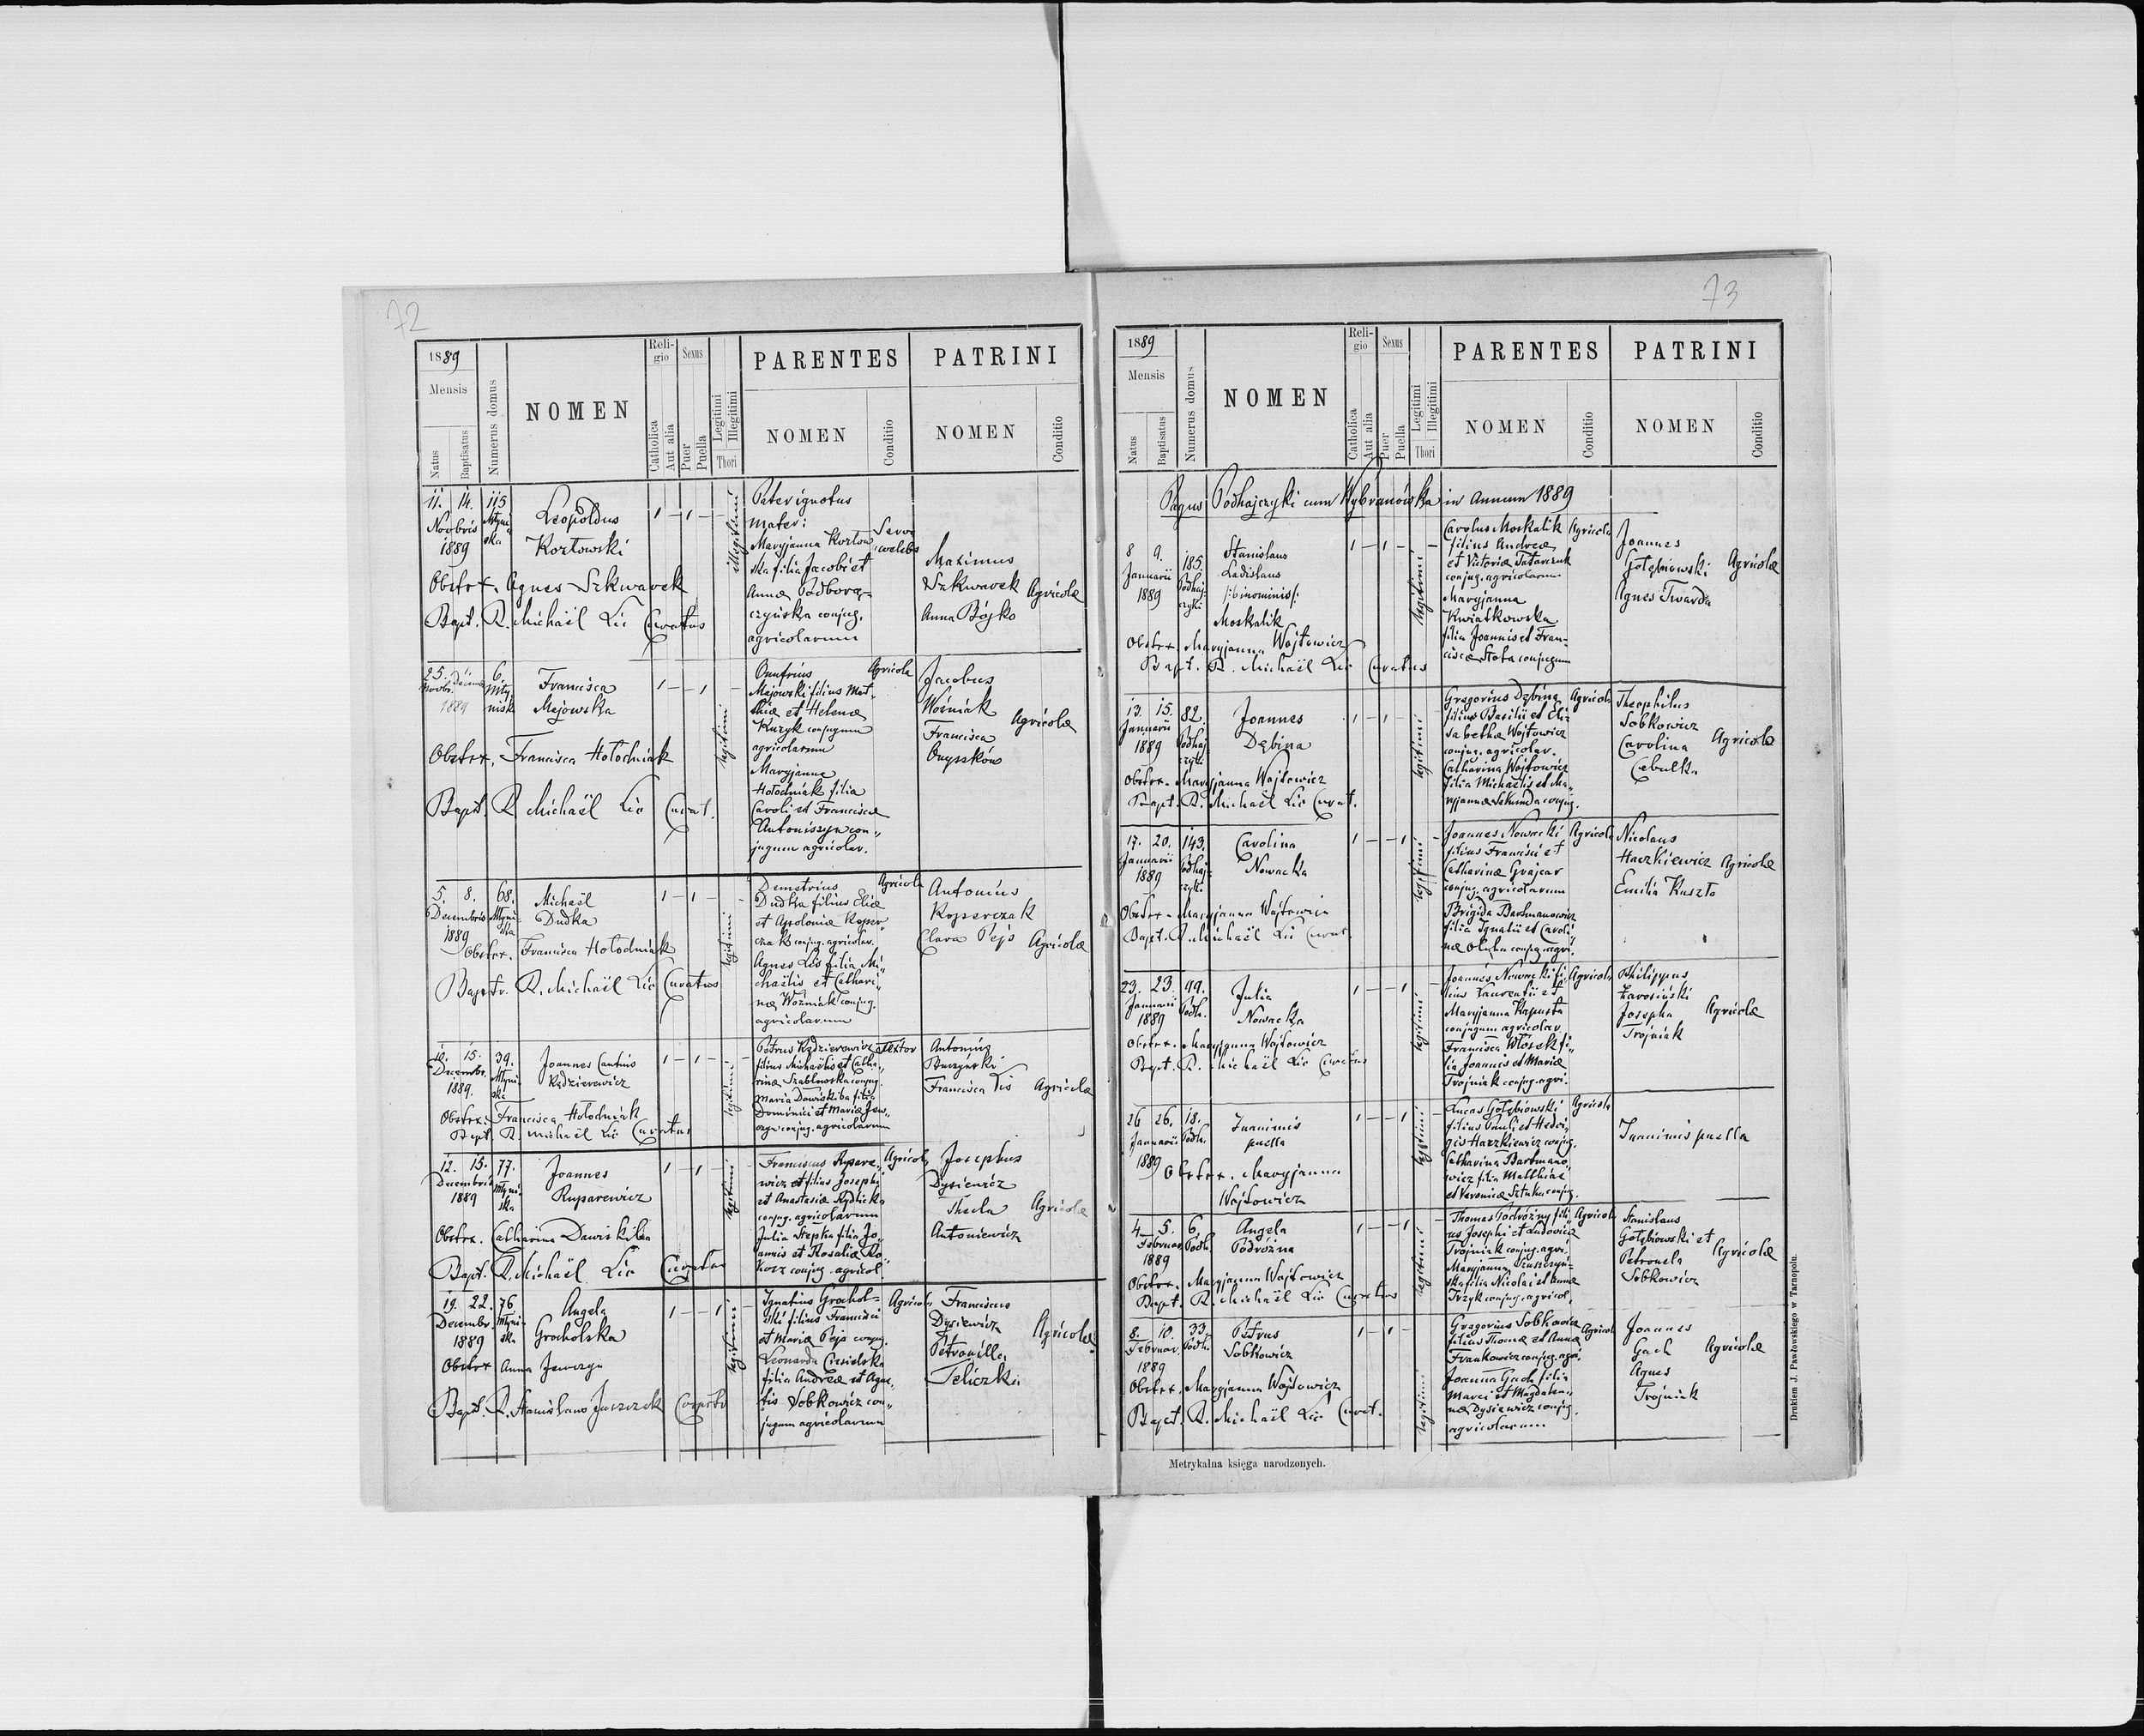 72
1889
Mensis
Natus
Baptisatus
Numerus domus
NOMEN
Religio
Catholica
Aut alia
Sexus
Puer
Puella
Legitimi
Illegitimi
Thori
PARENTES
NOMEN
Conditio
PATRINI
NOMEN
Conditio
11. 14. 115
Novbris Młyni
1889 ska
Leopoldus
Kozłowski
1 – 1 –
illegitimi
Pater ignotus
Mater:
Maryjanna Kozłow
ska filia Jacobi et
Annæ Podborą
czyńska conjug.
agricolarum
Maximus
Szkwarek
Anna Bójko
Agricolæ
Obstetr. Agnes Szkwarek
Bapt. R. Michaël Lic Curatus
25. 6.
Novbr. Młyn
1889 nisk
Francisca
Majowska
1 – 1
legitimi
Onufrius
Majowski filius Mat
thiæ et Helenæ
Kuzyk conjugum
agricolarum
Maryjanna
Hołodniak filia
Caroli et Franciscæ
Antoniszyn con„
jugum agricolar.
Agricola
Jacobus
Woźniak
Francisca
Onysków
Agricolæ
Obstetr. Francisca Hołodniak
Bapt. R. Michaël Lic Curat.
5. 8. 68.
Decembris Młyni
1889 ska
Michaël
Dudka
1 – 1 –
legitimi
Demetrius
Dudka filius Eliæ
et Apoloniæ Koper
czak conjug. agricolar.
Agnes Lis filia Mi„
chaëlis et Cathari„
næ Woźniak conjug.
agricolarum
Agricola
Antonius
Koperczak
Clara Pejs
Agricolæ
Obstetr. Francisca Hołodniak
Bapt. R. Michaël Lic Curatus
15. 39.
Decembr. Młyni
1889. ska
Joannes Cantius
Kędzierewicz
1 – 1 –
legitimi
Petrus Kędzierewicz
filius Michaëlis et Catha„
rinæ Szablowska conjug.
Maria Dawiskiba filia
Dominici et Mariæ
conjug. agricolarum
textor
Antonius
Buczyński
Francisca Lis
Agricolæ
Obstetr. Francisca Hołodniak
Bapt. R. Michaël Lic Curatus
12. 15. 77.
Decembris Młyni
1889 ska
Joannes
Ruparewicz
1 – 1 –
legitimi
Franciscus Rupare„
wicz et filius Josephi
et Anastasiæ
conjug. agricolarum
Julia Stepka filia Jo„
annis et Rosaliæ Ko
korz conjug. agricol.
Agricola
Josephus
Dysiewicz
Thecla
Antoniewicz
Agricolæ
Obstetr. Catharina Dawiskiba
Bapt. R. Michaël Lic Curatus
19. 22. 76
Decembr. Młyni
1889 ska
Angela
Grocholska
1 – – 1
legitimi
Ignatius Grochol=
ski filius Francisci
et Mariæ Pejs conjug.
Leonarda Ciesielska
filia Andreæ et Agne„
tis Sobkowicz con„
jugum agricolarum
Agricola
Franciscus
Dysiewicz
Petronilla
Teliczka
Agricolæ
Obstetr Anna Jewczyn
Bapt. R. Stanislaus
73
1889
Mensis
Natus
Baptisatus
Numerus domus
NOMEN
Religio
Catholica
Aut alia
Sexus
Puer
Puella
Legitimi
Illegitimi
Thori
PARENTES
NOMEN
Conditio
PATRINI
NOMEN
Conditio
Pagus Podhajczyki cum Wybranówka in Annum 1889
8 9. 185.
Januarii Podhaj
1889 czyki
Stanislaus
Ladislaus
/:binominis/:
Moskalik
1 – 1 –
legitimi
Carolus Moskalik
filius Andreæ
et Victoriæ Tatarczuk
conjug. agricolarum
Maryjanna
Kwiatkowska
filia Joannis et Fran„
ciscæ Słota conjugum
Agricola
Joannes
Gołębiowski
Agnes Twarda
Agricolæ
Obstetr. Maryjanna Wojtowicz
Bapt. R. Michaël Lic Curatus
13. 15. 82.
Januarii Podhaj
1889 czyki
Joannes
Dębina
1 – 1 –
legitimi
Gregorius Dębina
filius Basilii et Eli=
sabethæ Wojtowicz
conjug. agricolar.
Catharina Wojtowicz
filia Michaëlis et Ma„
ryjannæ Sekunda conjug.
Agricola
Theophilus
Sobkowicz
Carolina
Cebulka
Agricolæ
Obstetr. Maryjanna Wojtowicz
Bapt. R. Michaël Lic Curat.
17. 20. 143.
Januarii Podhaj
1889 czyki
Carolina
Nowacka
1 – – 1
legitimi
Joannes Nowacki
filius Francisci et
Catharinæ Grajcar
conjug. agricolarum
Brigida Bartmanowicz
filia Ignatii et Caroli„
næ conjug. agri.
Agricola
Nicolaus
Haczkiewicz
Emilia Kuszta
Agricolæ
Obstetr. Maryjanna Wojtowicz
Bapt. R. Michaël Lic Curat.
23. 23. 49.
Januarii Podh.
1889
Julia
Nowacka
1 – – 1
legitimi
Joannes Nowacki fi
lius Laurentii et
Maryjanna Kapusta
conjugum agricolar
Francisca Włosek fi„
lia Joannis et Mariæ
Trójniak conjug. agri.
Agricola
Philippus
Żarosiński
Josepha
Trojniak
Agricolæ
Obstetr. Maryjanna Wojtowicz
Bapt. R. Michaël Lic Curatus
26 26. 18.
Januarii Podh.
1889
puella
1 – – 1
legitimi
Lucas Gołębiowski
filius Pauli et Hedvi„
gis Haczkiewicz conjug.
Catharina Bartmano„
wicz filia Matthiæ
et Veronicæ Sztuka conjug.
Agricola
puella
Obstetr. Maryjanna
Wojtowicz
4. 5. 6.
Februar. Podh.
1889
Angela
Podróżna
1 – – 1
legitimi
Thomas Podróżny fili„
us Josephi et Ludovicæ
Trojniak conjug. agri.
Maryjanna
filia Nicolai et Annæ
conjug. agricol.
Agricola
Stanislaus
Gołębiowski et
Petronela
Sobkowicz
Agricolæ
Obstetr. Maryjanna Wojtowicz
Bapt. R. Michaël Lic Curatus
8. 10. 33.
Februar. Podh.
1889
Petrus
Sobkowicz
1 – 1 –
legitimi
Gregorius Sobkowicz
filius Thomæ et Annæ
Frankowicz conjug. agri.
Joanna Gach filia
Marci et Magdale„
næ Dysiewicz conjug.
agricolarum
Agricola
Joannes
Gach
Agnes
Trojniak
Agricolæ
Obstetr. Maryjanna Wojtowicz
Bapt. R. Michaël Lic Curat.
Metrykalna księga narodzonych.
Drukiem J. Pawłowskiego w Tarnopolu.